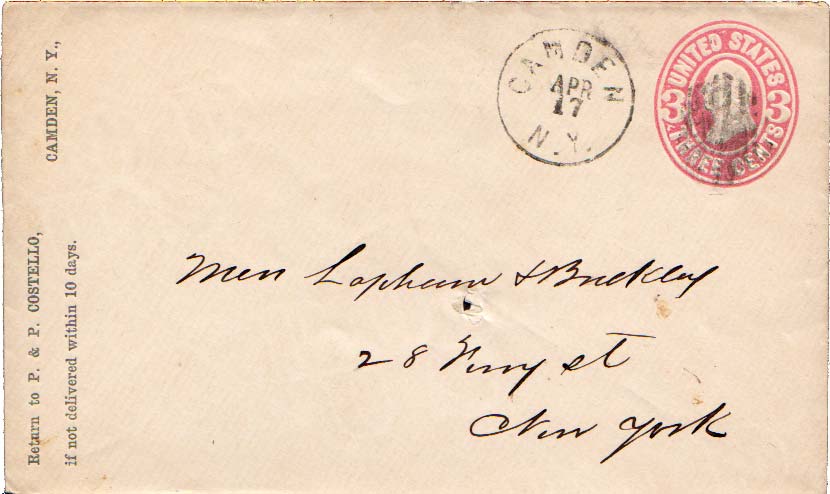 Return to P. & P. COSTELLO,
CAMDEN, N. Y.,
if not delivered within 10 days.
CAMDEN
APR
17
N.Y.
UNITED STATES
3 3
THREE CENTS
Mess Lapham & Buckley
28 Ferry st
New York